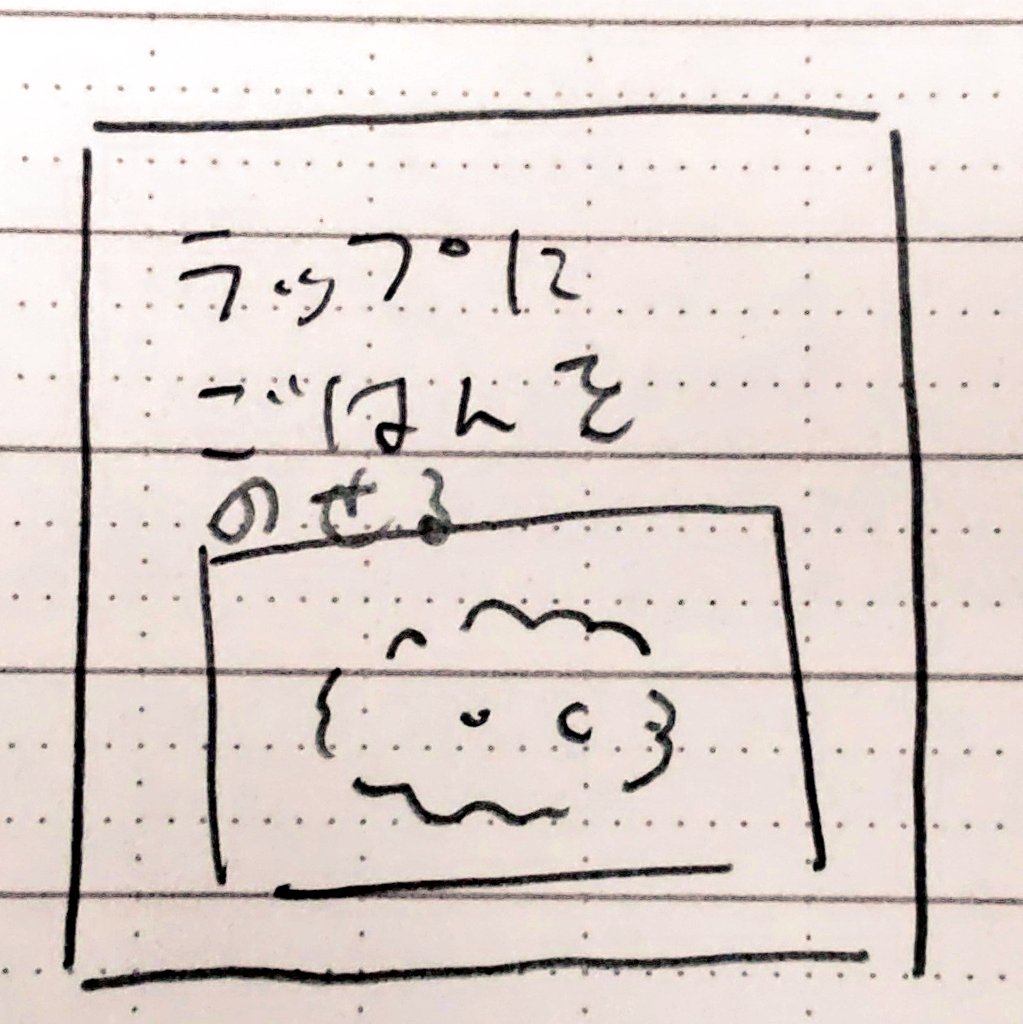 ラップに
ごはんを
のせる